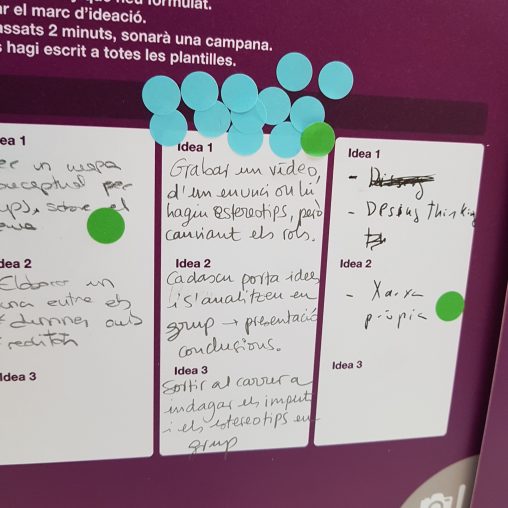 ny que heu formulat.
ar el marc d'ideació.
assats 2 minuts, sonarà una campana.
s hagi escrit a totes les plantilles.
ea 1
er un mapa
conceptual per
sobre el
dea 2
Elaborar un
una entre els
Idea 3
Idea 1
Grabar un vídeo,
d'un enunci on hi
hagin estereotips, però
canviant els rols.
Idea 2
Cadascu porta idees
i s'analitzen en
grup → presentació
conclusions.
Idea 3
Sortir al carrer a
indagar els imputs
i els estereotips en
grup
Idea 1
- Desing Thinking
Idea 2
- Xarxa
pròpia
Idea 3